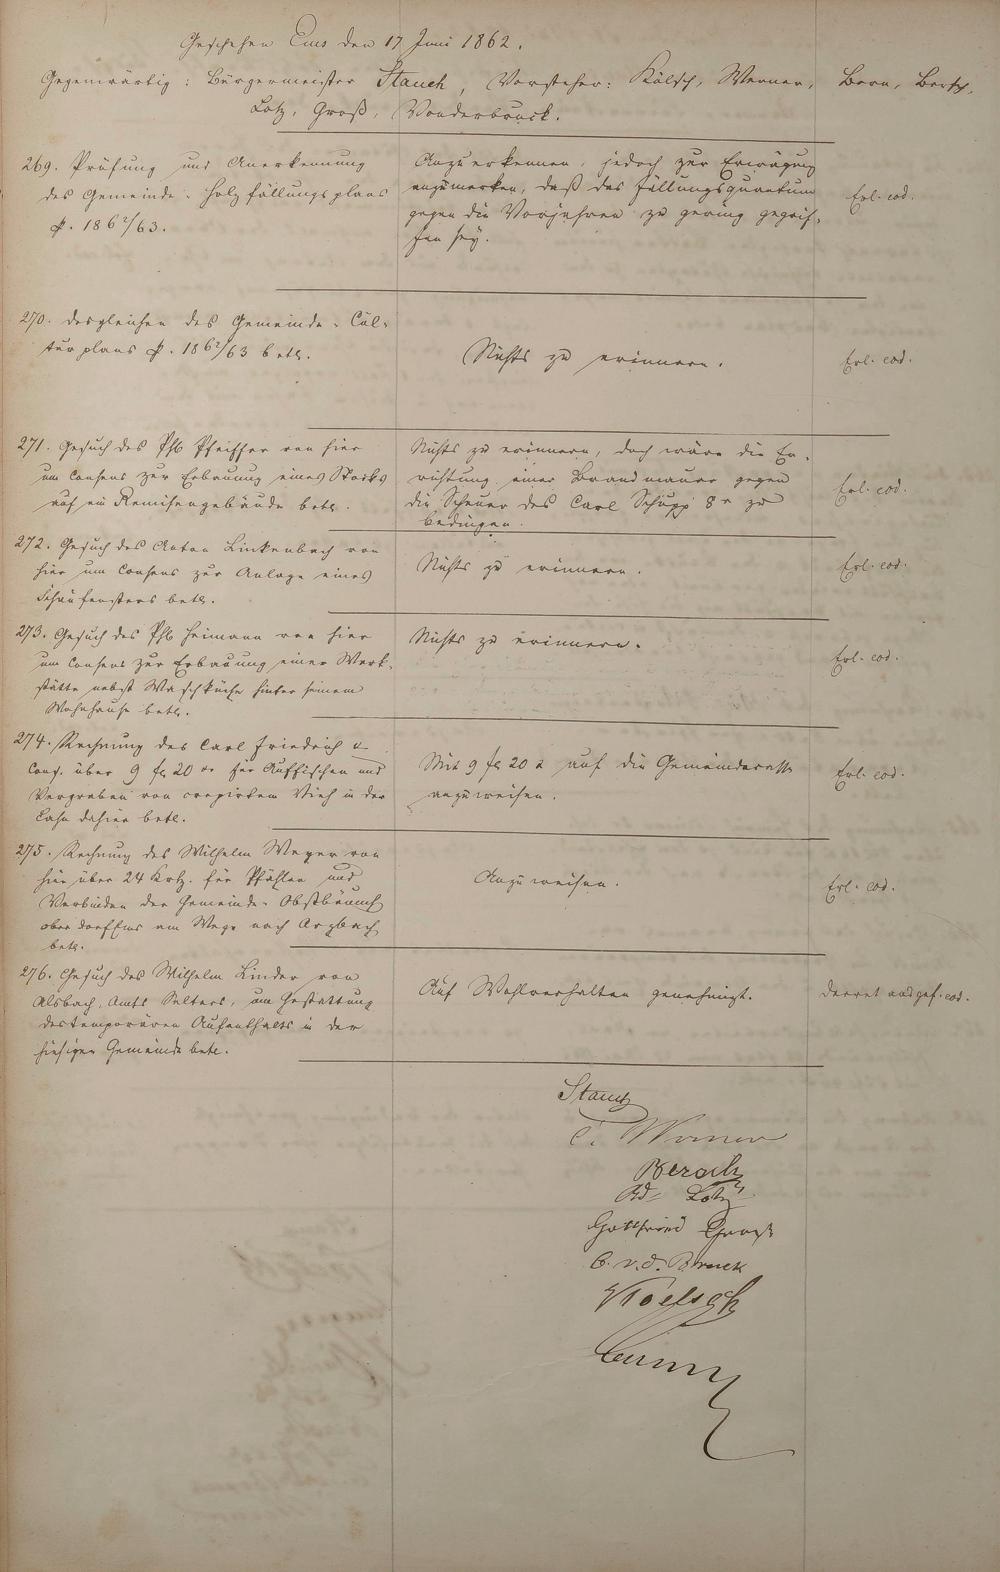 Geschehen Ems den 17 Juni 1862.
Gegenwärtig: Bürgermeister Stauch, Vorsteher: Kölsch, Werner, Born, Bertsch,
Lotz, Groß, Vonderbruck.
269. Prüfung und Anerkennung
des Gemeinde-Holzfällungsplans
p. 1862/63.
Anzuerkennen, jedoch zur Erwägung
anzumerken, daß das Fällungsquantum
gegen die Vorjahren zu gering gegrif-
fen sey.
Erl. eod.
270. Desgleichen des Gemeinde-Cul-
turplans p. 1862/63 betr.
Nichts zu erinnern.
Erl. eod.
271. Gesuch des Phl Pfeiffer von hier
um Consens zur Erbauung eines Stocks
auf ein Remisengebäude betr.
Nichts zu erinnern, doch wäre die Er-
richtung einer Brandmauer gegen
die Scheuer des Carl Schupp zu
bedingen.
Erl. eod.
272. Gesuch des Anton Linkenbach von
hier um Consens zur Anlage eines
Schaufensters betr.
Nichts zu erinnern.
Erl. eod.
273. Gesuch des Phl Heimann von hier
um Consens zur Erbauung einer Werk-
stätte nebst Waschküche hinter seinem
Wohnhause betr.
Nichts zu erinnern.
Erl. eod.
274. Rechnung des Carl Friedrich &
Cons. über 9 fl 20 xr für Auffischen und
Vergraben von crepirtem Vieh in der
Lahn dahier betr.
Mit 9 fl 20 x auf die Gemeindecasse
anzuweisen.
Erl. eod.
275. Rechnung des Wilhelm Weyer von
hier über 24 Krz. für Pfählen und
Verbinden der Gemeinde-Obstbäume
ober Dorf Ems am Wege nach Arzbach
betr.
Anzuweisen.
Erl. eod.
276. Gesuch des Wilhelm Linder von
Alsbach, Amts Selters, um Gestattung
des temporären Aufenthalts in der
hiesigen Gemeinde betr.
Auf Wohlverhalten genehmigt.
Decret ausgef. eod.
Stauch
C. Werner
Bertsch
Ad. Lotz
Gottfried Gross
C. v. d. Bruck
Koelsch